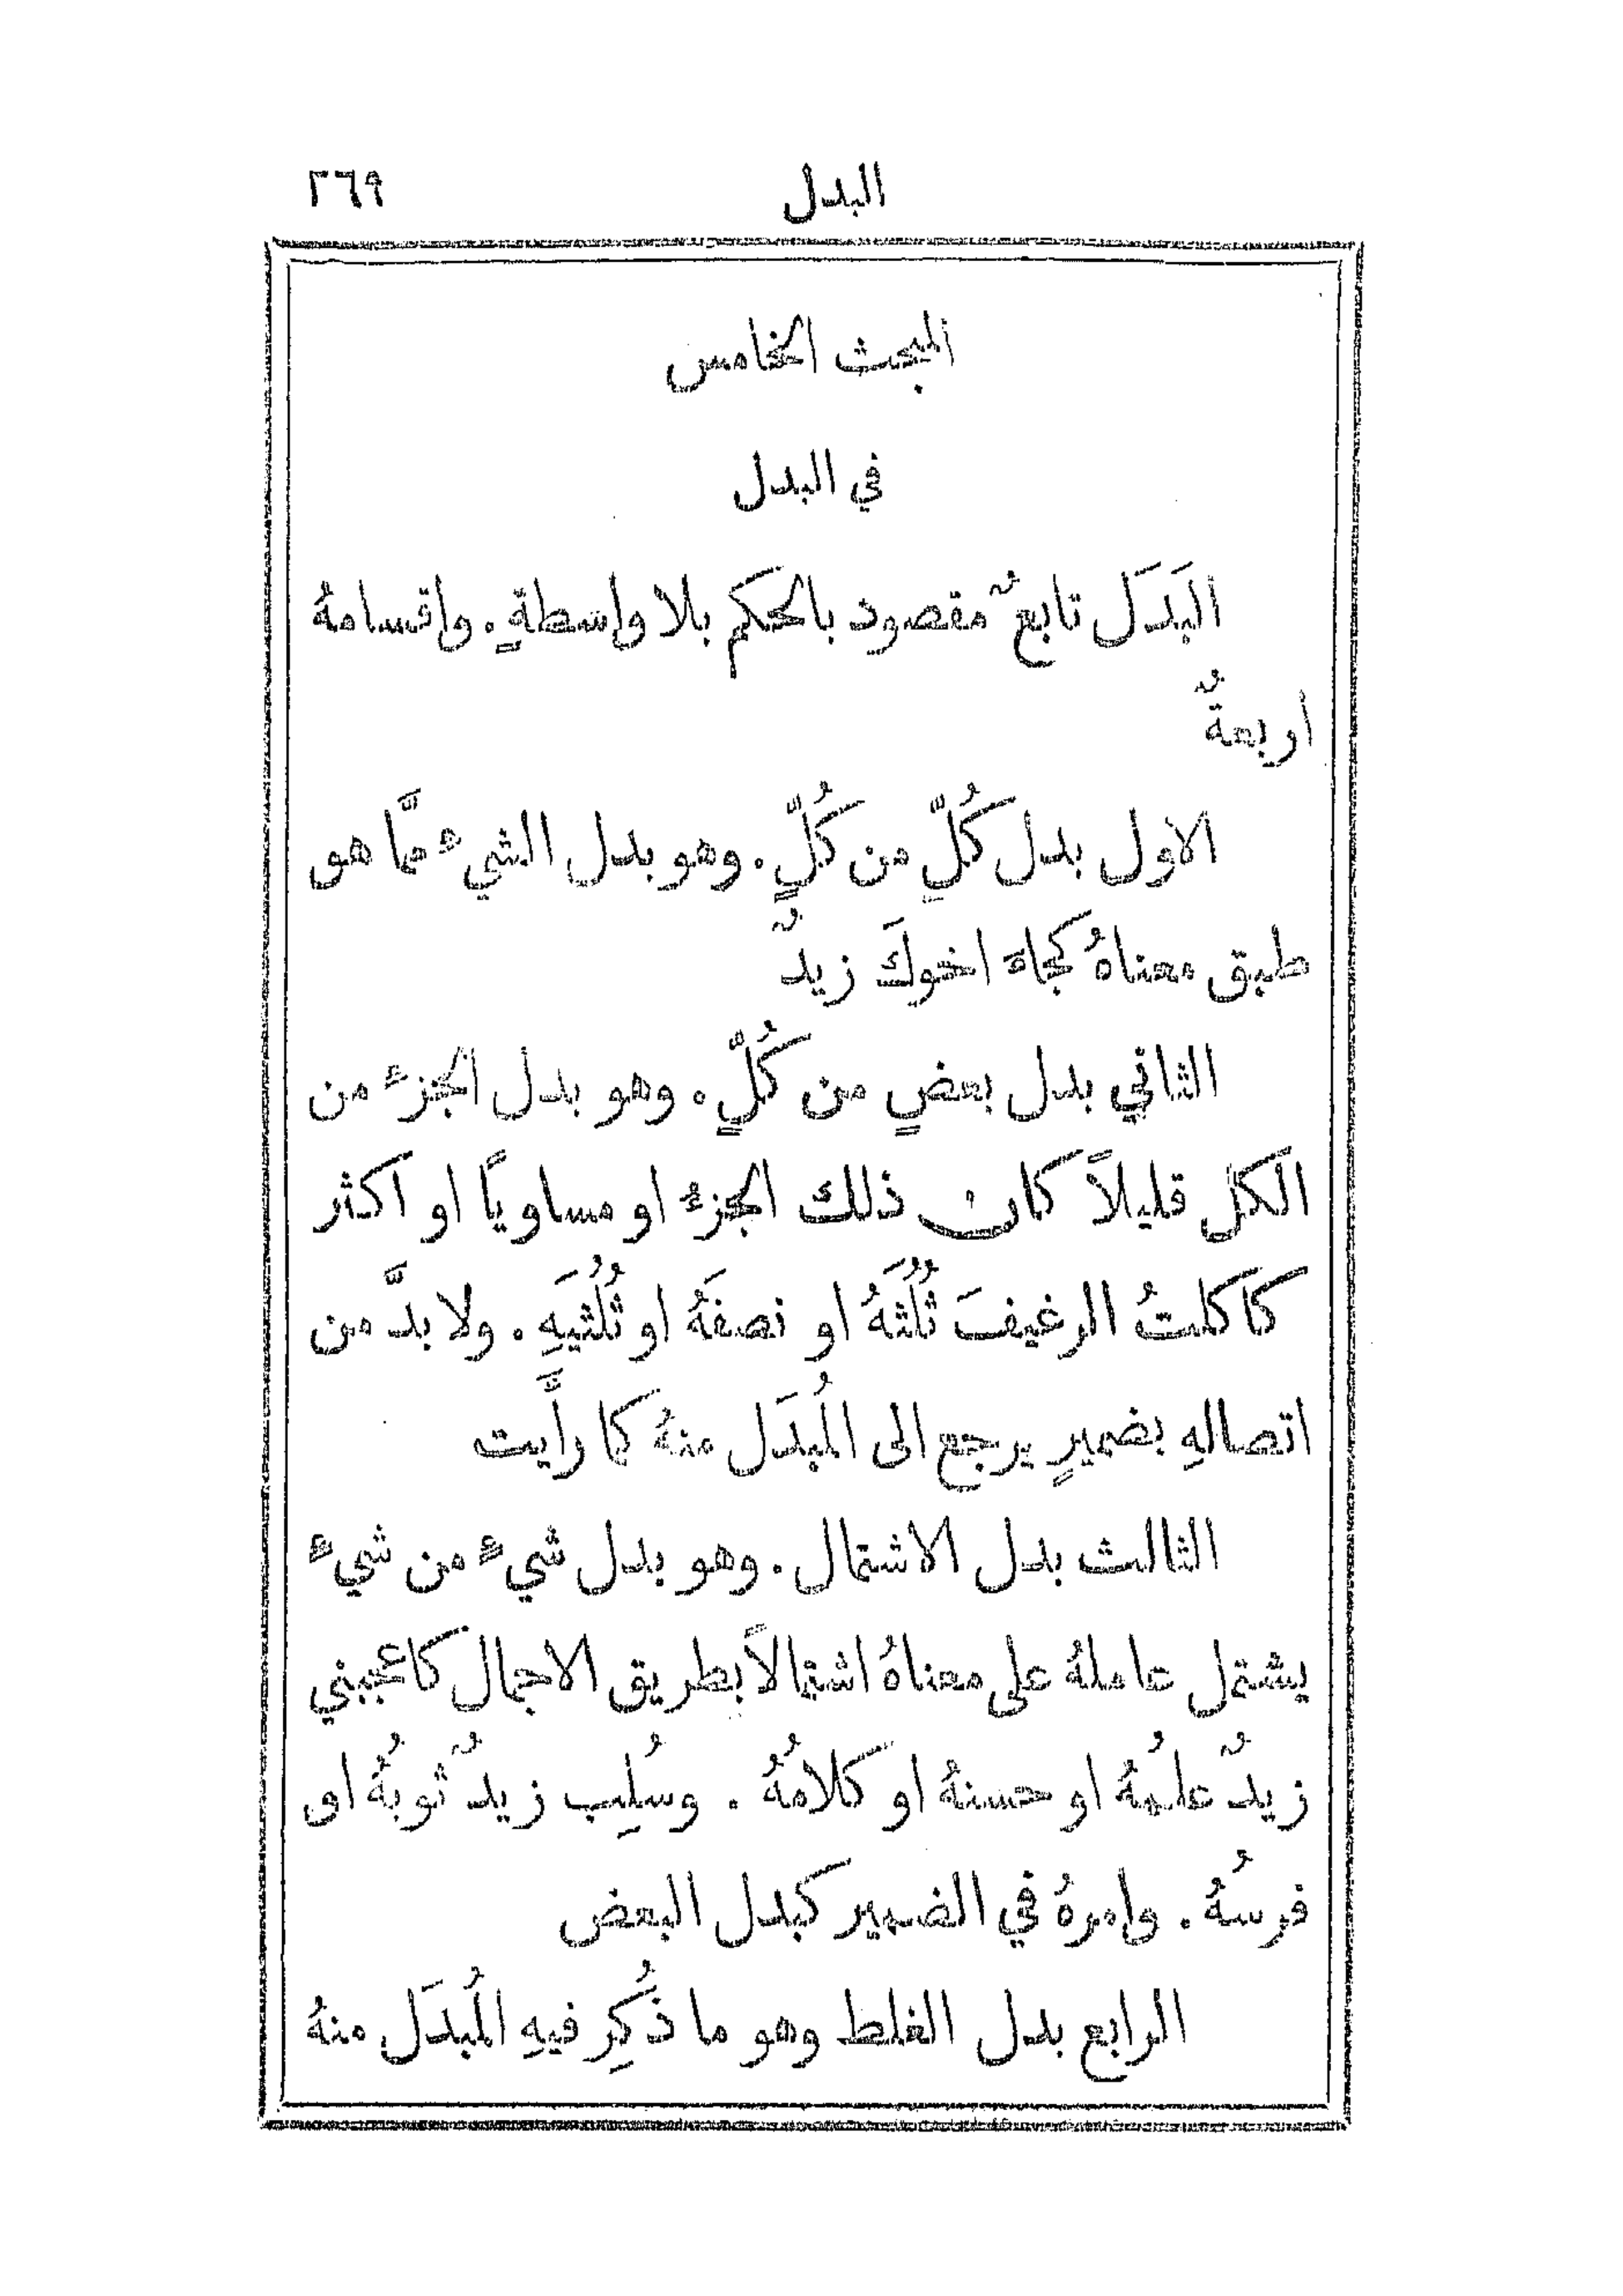 البدل ٢٦٩
المبحث الخامس
في البدل
البَدَل تابعٌ مقصود بالحكم بلا واسطةٍ. واقسامهُ
اربعةٌ
الاول بدل كُلٍّ من كُلٍّ. وهو بدل الشيءِ ممَّا هو
طبق معناهُ كجاءَ اخوكَ زيدٌ
الثاني بدل بعضٍ من كُلٍّ. وهو بدل الجزء من
الكل قليلاً كان ذلك الجزءُ او مساويًا او اكثر
كاكلتُ الرغيفَ ثُلُثَهُ او نصفَهُ او ثُلُثَيهِ. ولا بدَّ من
اتصالهِ بضميرٍ يرجع الى المُبدَل منهُ كما رأَيت
الثالث بدل الاشتمال. وهو بدل شيءٍ من شيءٍ
يشتمل عاملهُ على معناهُ اشتمالاً بطريق الاجمال كاعجبني
زيدٌ علمُهُ او حسنهُ او كلامُهُ. وسُلِب زيدٌ ثوبُهُ او
فرسُهُ. وامرهُ في الضمير كبدل البعض
الرابع بدل الغلط وهو ما ذُكِر فيهِ المُبدَل منهُ